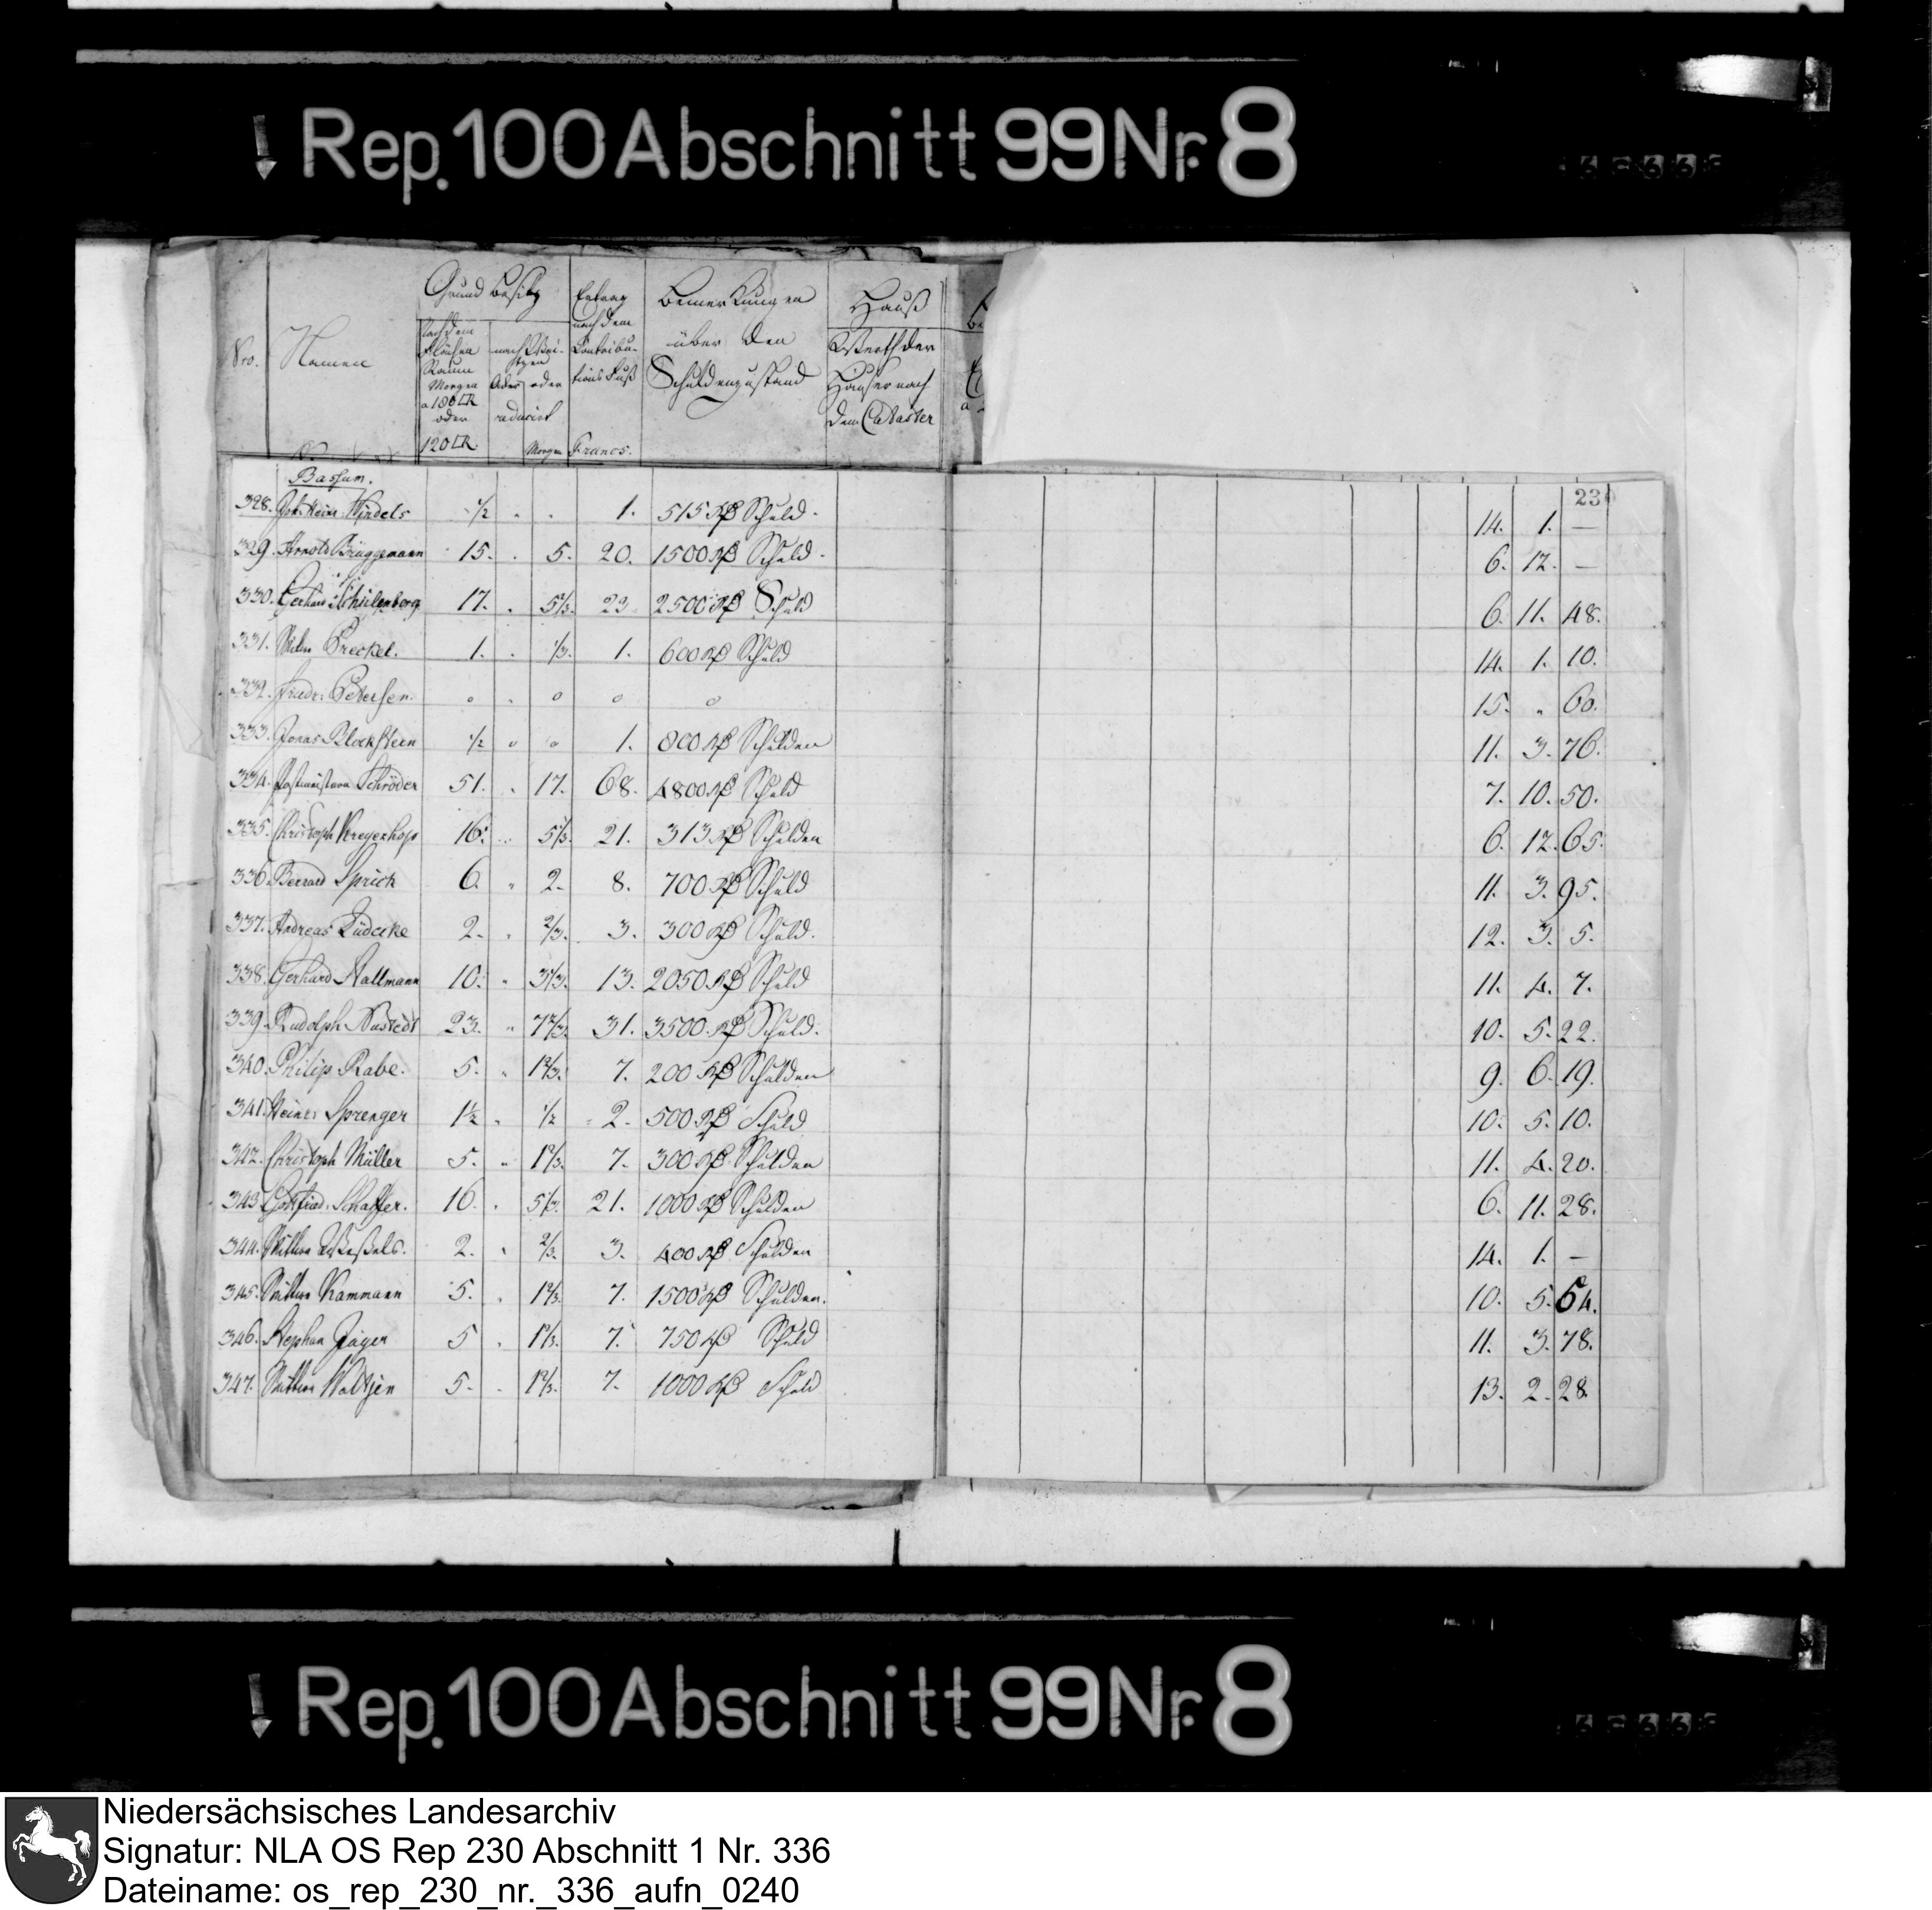 Rep. 100 Abschnitt 99 Nr. 8
Nro. Namen Grund Besitz Ertrag nach dem Contributions Fuß Bemerkungen über den Schuldenzustand Hauß
Nach dem Flächen Raum Morgen a 180 □R oder 120 □R. Werth der Häuser nach dem Cataster
oder reducirt Morgen Francs.
230
Bassum.
328. Joh. Heinr. Windels 1/2 " . 1. 515 Rß Schuld. 14. 1. —
329. Arnold Brüggemann 15. . 5. 20. 1500 Rß Schuld. 6. 12. —
330. Gerhard Schulenberg 17. . 5 2/3. 23. 2500 Rß Schuld 6. 11. 48.
331. Wilm Freckel. 1. . 1/3. 1. 600 Rß Schuld 14. 1. 10.
332. Friedr: Petersen. o . o o o 15. " 60.
333. Jonas Blockstein 1/2 o o 1. 800 Rß Schulden 11. 3. 76.
334. Postmeisterin Schröder 51. . 17. 68. 4800 Rß Schuld 7. 10. 50.
335. Christoph Kreyerhop 16. .. 5 1/3. 21. 313 Rß Schulden 6. 12. 65.
336. Berrard Sprick 6. " 2. 8. 700 Rß Schuld 11. 3. 95.
337. Andreas Lüdecke 2. . 2/3. 3. 300 Rß Schuld. 12. 3. 5.
338. Gerhard Stallmann 10. " 3 1/3. 13. 2050 Rß Schuld 11. 4. 7.
339. Rudolph Nustedt 23. " 7 2/3. 31. 3500. Rß Schuld. 10. 5. 22.
340. Philip Rabe. 5. " 1 2/3. 7. 200 Rß Schulden 9. 6. 19.
341. Heinr: Sprenger 1 1/2 . 1/2 2. 500 Rß Schuld 10. 5. 10.
342. Christoph Müller 5. " 1 2/3. 7. 300 Rß Schulden 11. 4. 20.
343. Gottfried. Schaffer. 16. . 5 1/3. 21. 1000 Rß Schulden 6. 11. 28.
344. Wittwe Weßels. 2. " 2/3. 3. 400 Rß Schulden 14. 1. —
345. Wittwe Kammann 5. . 1 2/3. 7. 1500 Rß Schulden. 10. 5. 64.
346. Stephan Jäger 5 . 1 2/3. 7. 750 Rß Schuld 11. 3. 78.
347. Wittwe Woltjen 5. . 1 2/3. 7. 1000 Rß Schuld 13. 2. 28.
Rep. 100 Abschnitt 99 Nr. 8
Niedersächsisches Landesarchiv
Signatur: NLA OS Rep 230 Abschnitt 1 Nr. 336
Dateiname: os_rep_230_nr._336_aufn_0240